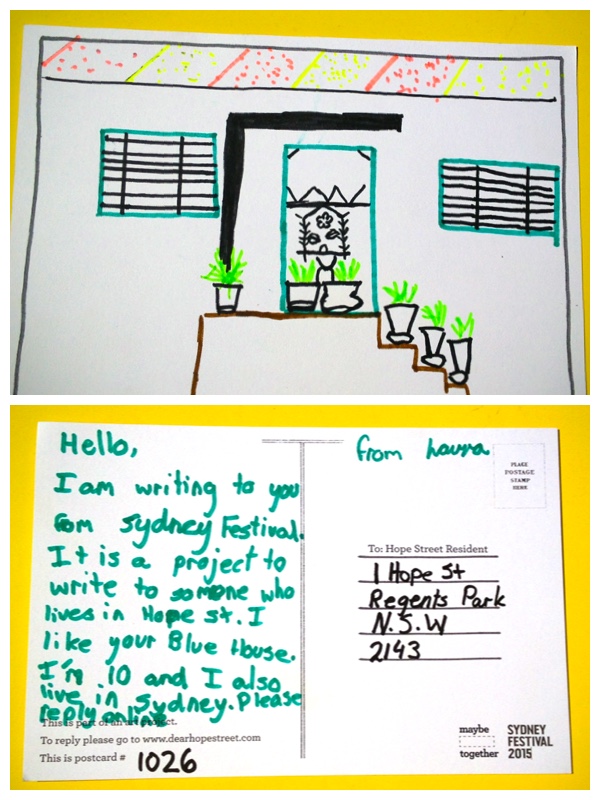 Hello,
I am writing to you
fom Sydney Festival.
It is a project to
write to somone who
lives in Hope st. I
like your Blue House.
I'm 10 and I also
live in Sydney. Please
reply online
This is part of an art project.
To reply please go to www.dearhopestreet.com
This is postcard # 1026
from Laura
PLACE
POSTAGE
STAMP
HERE
To: Hope Street Resident
1 Hope St
Regents Park
N.S.W
2143
maybe
together
SYDNEY
FESTIVAL
2015